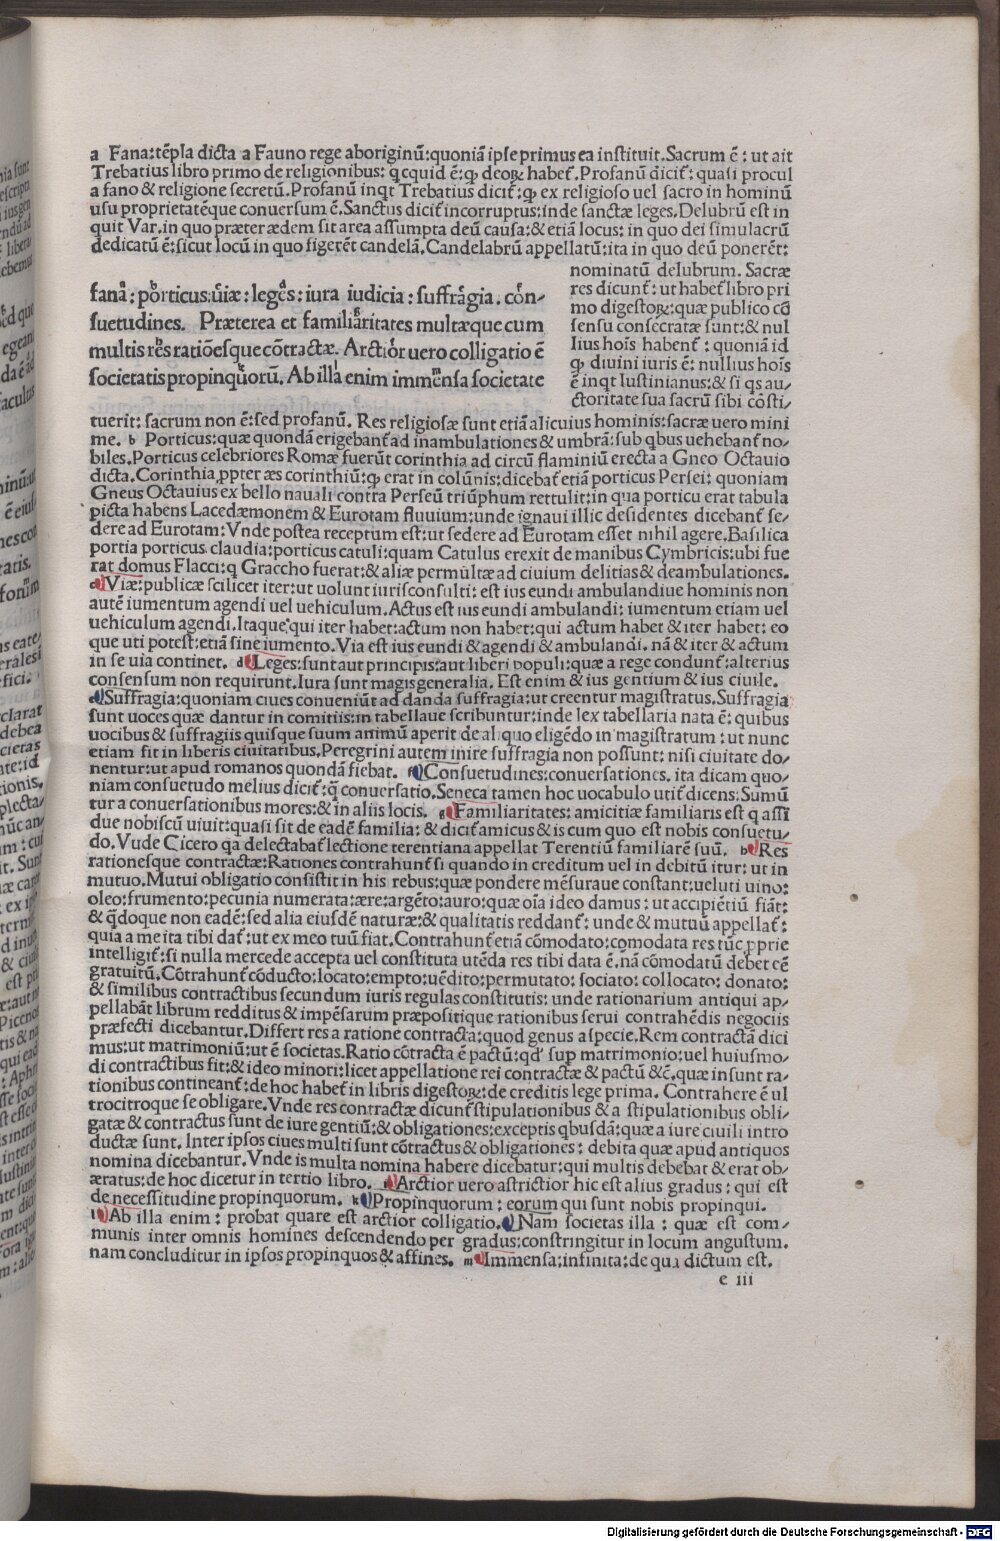 a Fana:tēpla dicta a Fauno rege aboriginū:quoniā ipse primus ea instituit.Sacrum ē: ut ait
Trebatius libro primo de religionibus: qcquid ē:ꝙ deoꝝ habet᷑.Profanū dicit᷑: quasi procul
a fano & religione secretū.Profanū inqt Trebatius dicit᷑:ꝙ ex religioso uel sacro in hominū
usu proprietatēque conuersum ē.Sanctus dicit᷑ incorruptus:inde sanctæ leges.Delubrū est in
quit Var.in quo præter ædem sit area assumpta deū causa:& etiā locus: in quo dei simulacrū
dedicatū ē:sicut locū in quo figerēt candelā.Candelabrū appellatū:ita in quo deū ponerēt:
nominatū delubrum. Sacræ
res dicunt᷑: ut habet᷑ libro pri
mo digestoꝝ:quæ publico cō
sensu consecratæ sunt:& nul
lius hoīs habent᷑: quoniā id
ꝙ diuini iuris ē: nullius hoīs
ē inqt Iustinianus:& si qs au-
ctoritate sua sacrū sibi cōsti-
fana: porticus:uiæ: leges: iura iudicia: suffragia. con-
suetudines. Præterea et familiaritates multæque cum
multis res ratiōesque cōtractæ. Arctior uero colligatio ē
societatis propinquorū. Ab illa enim immensa societate
tuerit: sacrum non ē:sed profanū. Res religiosæ sunt etiā alicuius hominis:sacræ uero mini
me. b Porticus:quæ quondā erigebant᷑ ad inambulationes & umbrā:sub qbus uehebant᷑ no-
biles.Porticus celebriores Romæ fuerūt corinthia ad circū flaminiū erecta a Gneo Octauio
dicta.Corinthia ꝓpter æs corinthiū:ꝙ erat in colūnis:dicebat᷑ etiā porticus Persei: quoniam
Gneus Octauius ex bello nauali contra Perseū triūphum rettulit:in qua porticu erat tabula
picta habens Lacedæmonem & Eurotam fluuium:unde ignaui illic desidentes dicebant᷑ se-
dere ad Eurotam:Vnde postea receptum est:ut sedere ad Eurotam esset nihil agere.Basilica
portia porticus claudia:porticus catuli:quam Catulus erexit de manibus Cymbricis:ubi fue
rat domus Flacci:q Graccho fuerat:& aliæ permultæ ad ciuium delitias & deambulationes.
c Viæ:publicæ scilicet iter:ut uolunt iurisconsulti: est ius eundi ambulandiue hominis non
autē iumentum agendi uel uehiculum.Actus est ius eundi ambulandi: iumentum etiam uel
uehiculum agendi.Itaque qui iter habet:actum non habet:qui actum habet & iter habet: eo
que uti potest:etiā sine iumento.Via est ius eundi & agendi & ambulandi. nā & iter & actum
in se uia continet. d Leges:sunt aut principis:aut liberi populi:quæ a rege condunt᷑:alterius
consensum non requirunt.Iura sunt magis generalia. Est enim & ius gentium & ius ciuile.
e Suffragia:quoniam ciues conueniūt ad danda suffragia:ut creentur magistratus.Suffragia
sunt uoces quæ dantur in comitiis:in tabellaue scribuntur:inde lex tabellaria nata ē: quibus
uocibus & suffragiis quisque suum animū aperit de aliquo eligēdo in magistratum: ut nunc
etiam fit in liberis ciuitatibus.Peregrini autem inire suffragia non possunt: nisi ciuitate do-
nentur:ut apud romanos quondā fiebat. f Consuetudines:conuersationes. ita dicam quo-
niam consuetudo melius dicit᷑:q̄ conuersatio.Seneca tamen hoc uocabulo utit᷑ dicens:Sumū
tur a conuersationibus mores:& in aliis locis. g Familiaritates: amicitiæ familiaris est q assi
due nobiscū uiuit:quasi sit de eadē familia: & dicit᷑ amicus & is cum quo est nobis consuetu-
do.Vude Cicero qa delectabat᷑ lectione terentiana appellat Terentiū familiarē suū. h Res
rationesque contractæ:Rationes contrahunt᷑ si quando in creditum uel in debitū itur: ut in
mutuo.Mutui obligatio consistit in his rebus:quæ pondere mēsuraue constant:ueluti uino:
oleo:frumento:pecunia numerata:ære:argēto:auro:quæ oīa ideo damus: ut accipiētiū fiāt:
& qdoque non eadē:sed alia eiusdē naturæ:& qualitatis reddant᷑: unde & mutuū appellat᷑:
quia a me ita tibi dat᷑:ut ex meo tuū fiat.Contrahunt᷑ etiā cōmodato:comodata res tūc ꝓprie
intelligit᷑:si nulla mercede accepta uel constituta utēda res tibi data ē.nā cōmodatū debet eē
gratuitū.Cōtrahunt᷑ cōducto:locato:empto:uēdito:permutato: sociato: collocato: donato:
& similibus contractibus secundum iuris regulas constitutis: unde rationarium antiqui ap-
pellabāt librum redditus & impēsarum præpositique rationibus serui contrahēdis negociis
præfecti dicebantur.Differt res a ratione contracta:quod genus a specie.Rem contractā dici
mus:ut matrimoniū:ut ē societas.Ratio cōtracta ē pactū:qd' sup matrimonio:uel huiusmo-
di contractibus fit:& ideo minori:licet appellatione rei contractæ & pactū &c̄.quæ insunt ra-
tionibus contineant᷑:de hoc habet᷑ in libris digestoꝝ:de creditis lege prima. Contrahere ē ul
trocitroque se obligare.Vnde res contractæ dicunt᷑ stipulationibus & a stipulationibus obli-
gatæ & contractus sunt de iure gentiū:& obligationes:exceptis qbusdā:quæ a iure ciuili intro
ductæ sunt. Inter ipsos ciues multi sunt cōtractus & obligationes: debita quæ apud antiquos
nomina dicebantur. Vnde is multa nomina habere dicebatur:qui multis debebat & erat ob-
æratus:de hoc dicetur in tertio libro. i Arctior uero astrictior hic est alius gradus: qui est
de necessitudine propinquorum. k Propinquorum: eorum qui sunt nobis propinqui.
l Ab illa enim: probat quare est arctior colligatio. Nam societas illa: quæ est com-
munis inter omnis homines descendendo per gradus:constringitur in locum angustum.
nam concluditur in ipsos propinquos & affines. m Immensa:infinita:de qua dictum est.
e iii
Digitalisierung gefördert durch die Deutsche Forschungsgemeinschaft - DFG